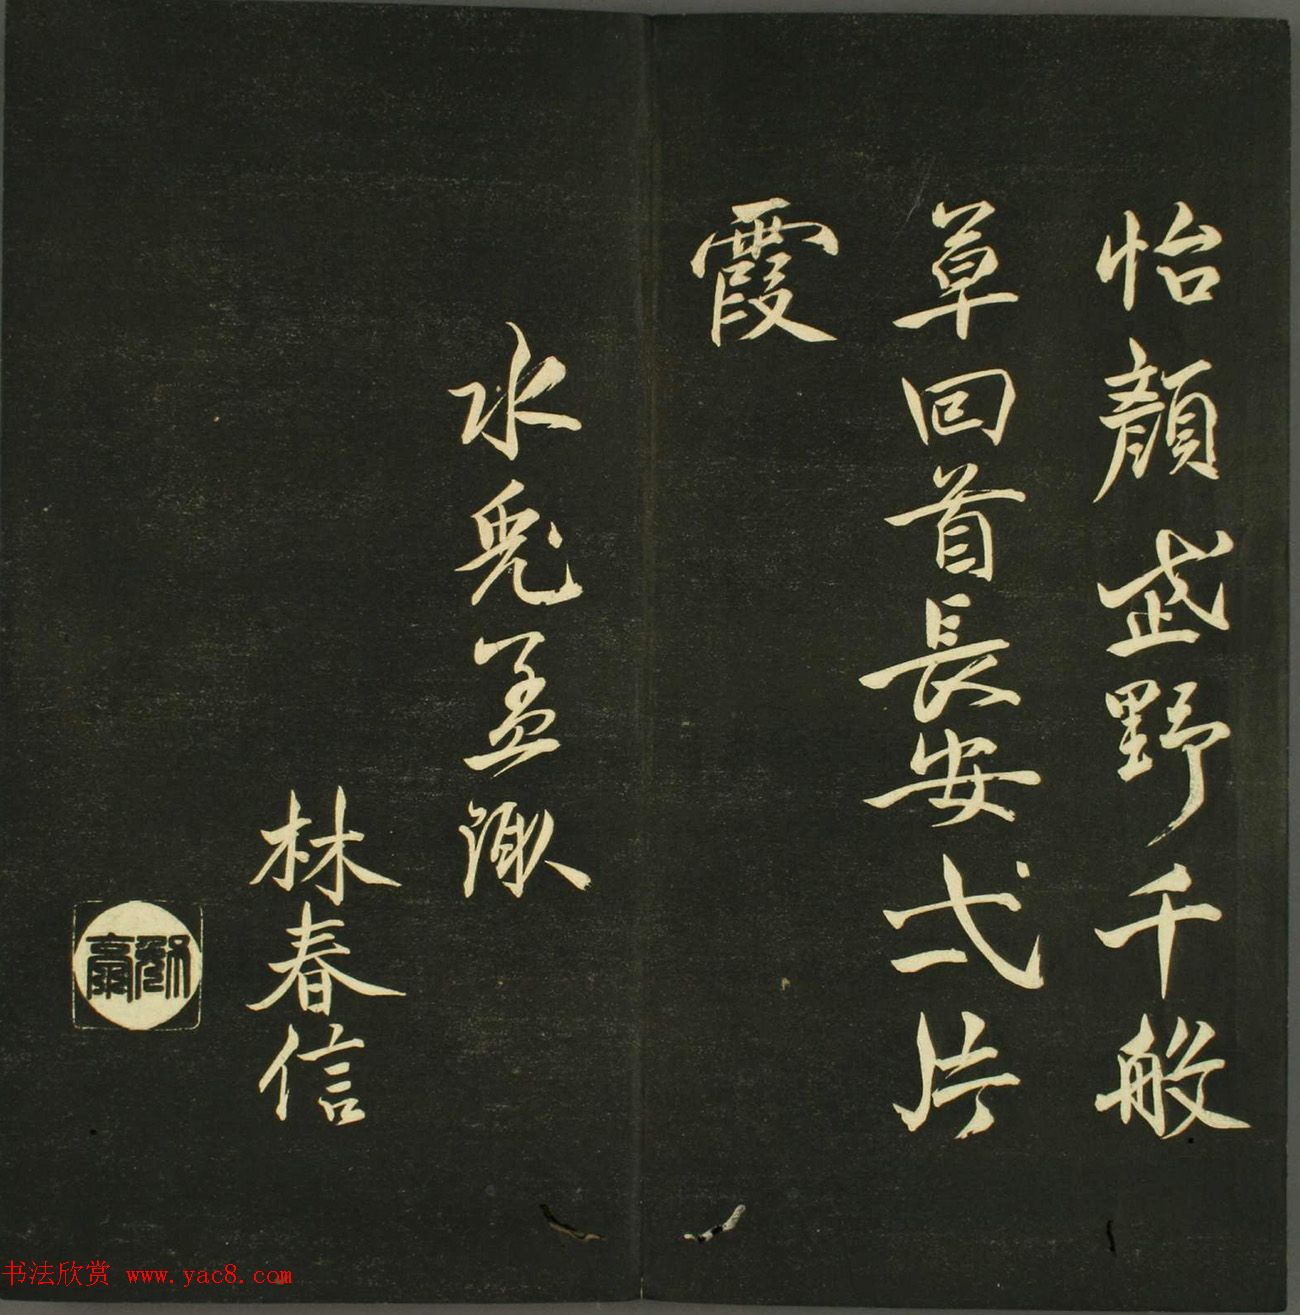 怡顏武野千般
草回首長安弍片
霞
水兎孟陬
林春信
书法欣赏 www.yac8.com